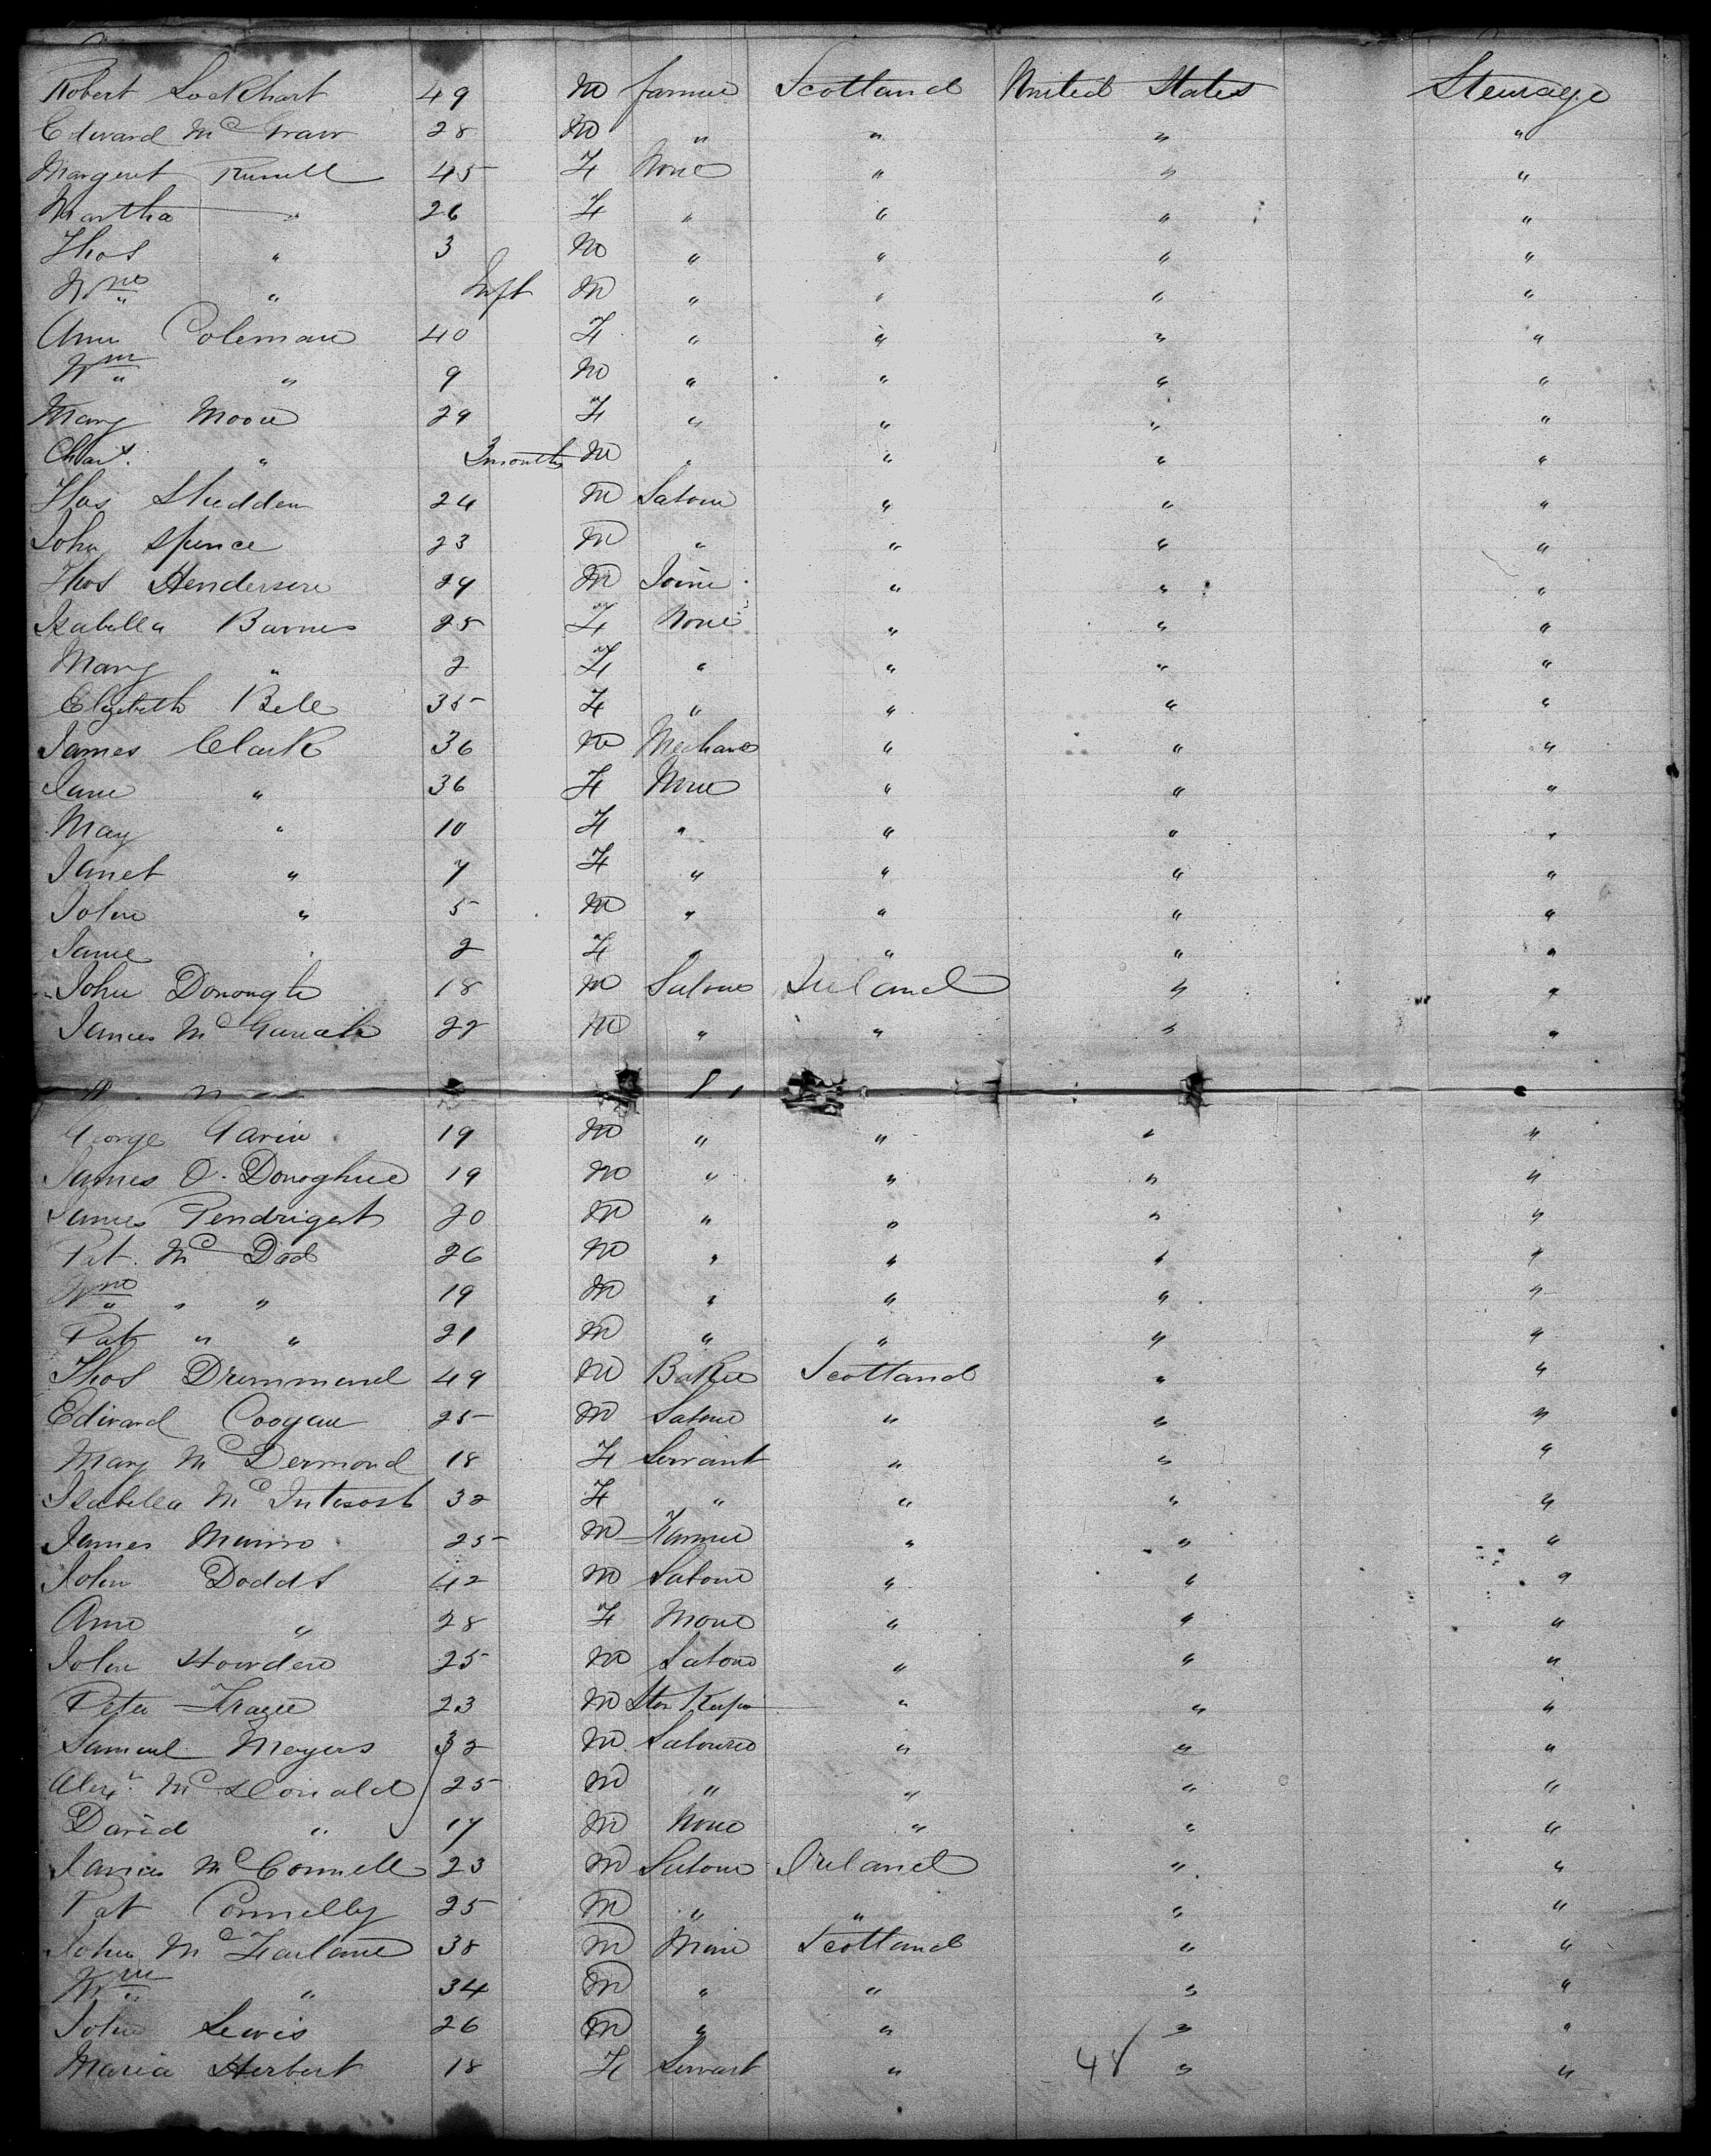 Robert Lockhart 49 M farmer Scotland United States Steerage
Edward McGraw 28 M " " " "
Margeret Russell 45 F None " " "
Martha " 26 F " " " "
Thos " 3 M " " " "
Wm " Inft M " " " "
Ann Coleman 40 F " " " "
Wm " 9 M " " " "
Mary Moore 29 F " " " "
Chas. " 3 months M " " " "
Thos Shedden 24 M Labour " " "
John Spence 23 M " " " "
Thos Henderson 24 M Joiner " " "
Isabella Barnes 25 F None " " "
Mary " 2 F " " " "
Elizabeth Bell 35 F " " " "
James Clark 36 M Mechanic " " "
Jane " 36 F None " " "
May " 10 F " " " "
Janet " 7 F " " " "
John " 5 M " " " "
Jane 2 F " " " "
John Donough 18 M Labour Ireland " "
James Mc 22 M " " " "
George Gavin 19 M " " " "
James O. Donoghue 19 M " " " "
James Pendrigast 20 M " " " "
Pat. Mc Dad 26 M " " " "
Wm " " 19 M " " " "
Pat " " 21 M " " " "
Thos Drummond 49 M Baker Scotland " "
Edward Coogan 25 M Labour " " "
Mary McDermond 18 F Servant " " "
Isabella McIntosh 32 F " " " "
James Munro 25 M Farmer " " "
John Dodds 42 M Labour " " "
Ann " 28 F None " " "
John Howden 25 M Labour " " "
Peter Frazer 23 M Store Keeper " " "
Samuel Meyers 32 M Labourer " " "
Alexr. McDonald 25 M " " " "
David " 17 M None " " "
James McConnell 23 M Labour Ireland " "
Pat Connelly 25 M " " " "
John McFarlane 38 M Miner Scotland " "
Wm " 34 M " " " "
John Lewis 26 M " " " "
Maria Herbert 18 F Servant " 48 " "